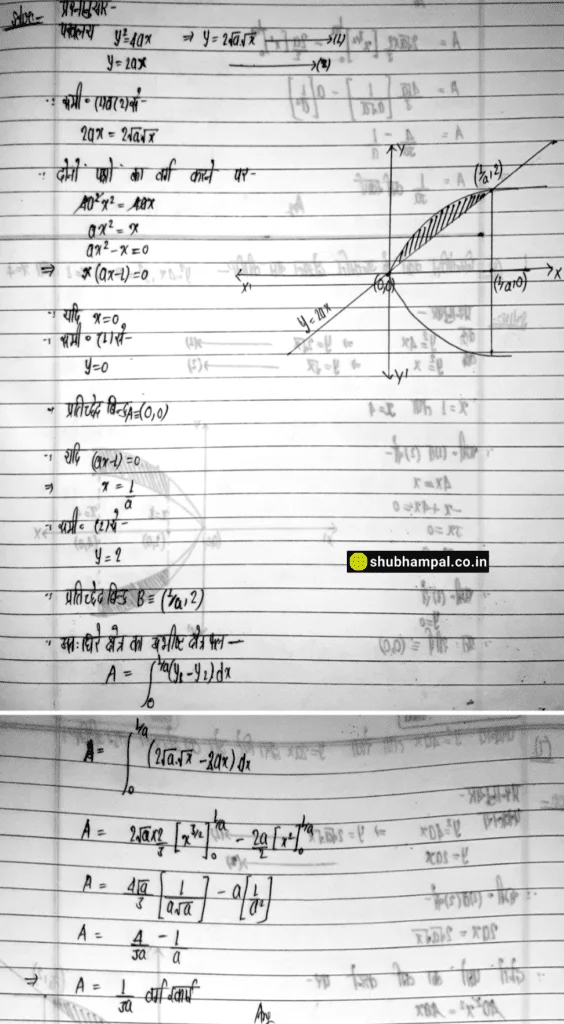 प्रश्नानुसार-
परवलय y²=4ax ⇒ y=2√a√x →(1)
y=2ax →(2)
∵ समी॰ (1)व(2)से-
2ax = 2√a√x
∵ दोनों पक्षों का वर्ग करने पर-
4a²x² = 4ax
ax² = x
ax²-x=0
⇒ x(ax-1)=0
∵ यदि x=0
∵ समी॰ (1)से-
y=0
∵ प्रतिच्छेद बिन्दु A≡(0,0)
∵ यदि (ax-1)=0
⇒ x = 1/a
∵ समी॰ (2)से-
y=2
∵ प्रतिच्छेद बिन्दु B≡(1/a,2)
अतः घिरे क्षेत्र का अभीष्ट क्षेत्रफल—
A = ∫₀^(1/a) (y₁-y₂)dx
Y
(1/a,2)
X'
(0,0)
(1/a,0)
X
y=2ax
Y'
shubhampal.co.in
A = ∫₀^(1/a) (2√a.√x -2ax)dx
A = 2√a×2/3 [x^(3/2)]₀^(1/a) - 2a/2 [x²]₀^(1/a)
A = 4√a/3 [1/a√a] - a[1/a²]
A = 4/3a - 1/a
⇒ A = 1/3a वर्ग इकाई
Ans